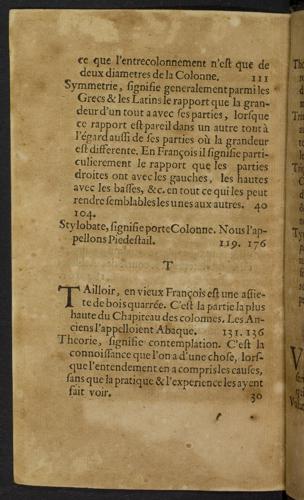 ce que l'entrecolonnement n'est que de
deux diametres de la Colonne. 111
Symmetrie, signifie generalement parmi les
Grecs & les Latins le rapport que la gran-
deur d'un tout a avec ses parties, lorsque
ce rapport est pareil dans un autre tout à
l'égard aussi de ses parties où la grandeur
est differente. En François il signifie parti-
culierement le rapport que les parties
droites ont avec les gauches, les hautes
avec les basses, &c. en tout ce qui les peut
rendre semblables les unes aux autres. 40
104.
Stylobate, signifie porte Colonne. Nous l'ap-
pellons Piedestail. 119. 176
T
TAilloir, en vieux François est une assie-
te de bois quarrée. C'est la partie la plus
haute du Chapiteau des colonnes. Les An-
ciens l'appelloient Abaque. 131. 136
Theorie, signifie contemplation. C'est la
connoissance que l'on a d'une chose, lors-
que l'entendement en a compris les causes,
sans que la pratique & l'experience les ayent
fait voir. 30